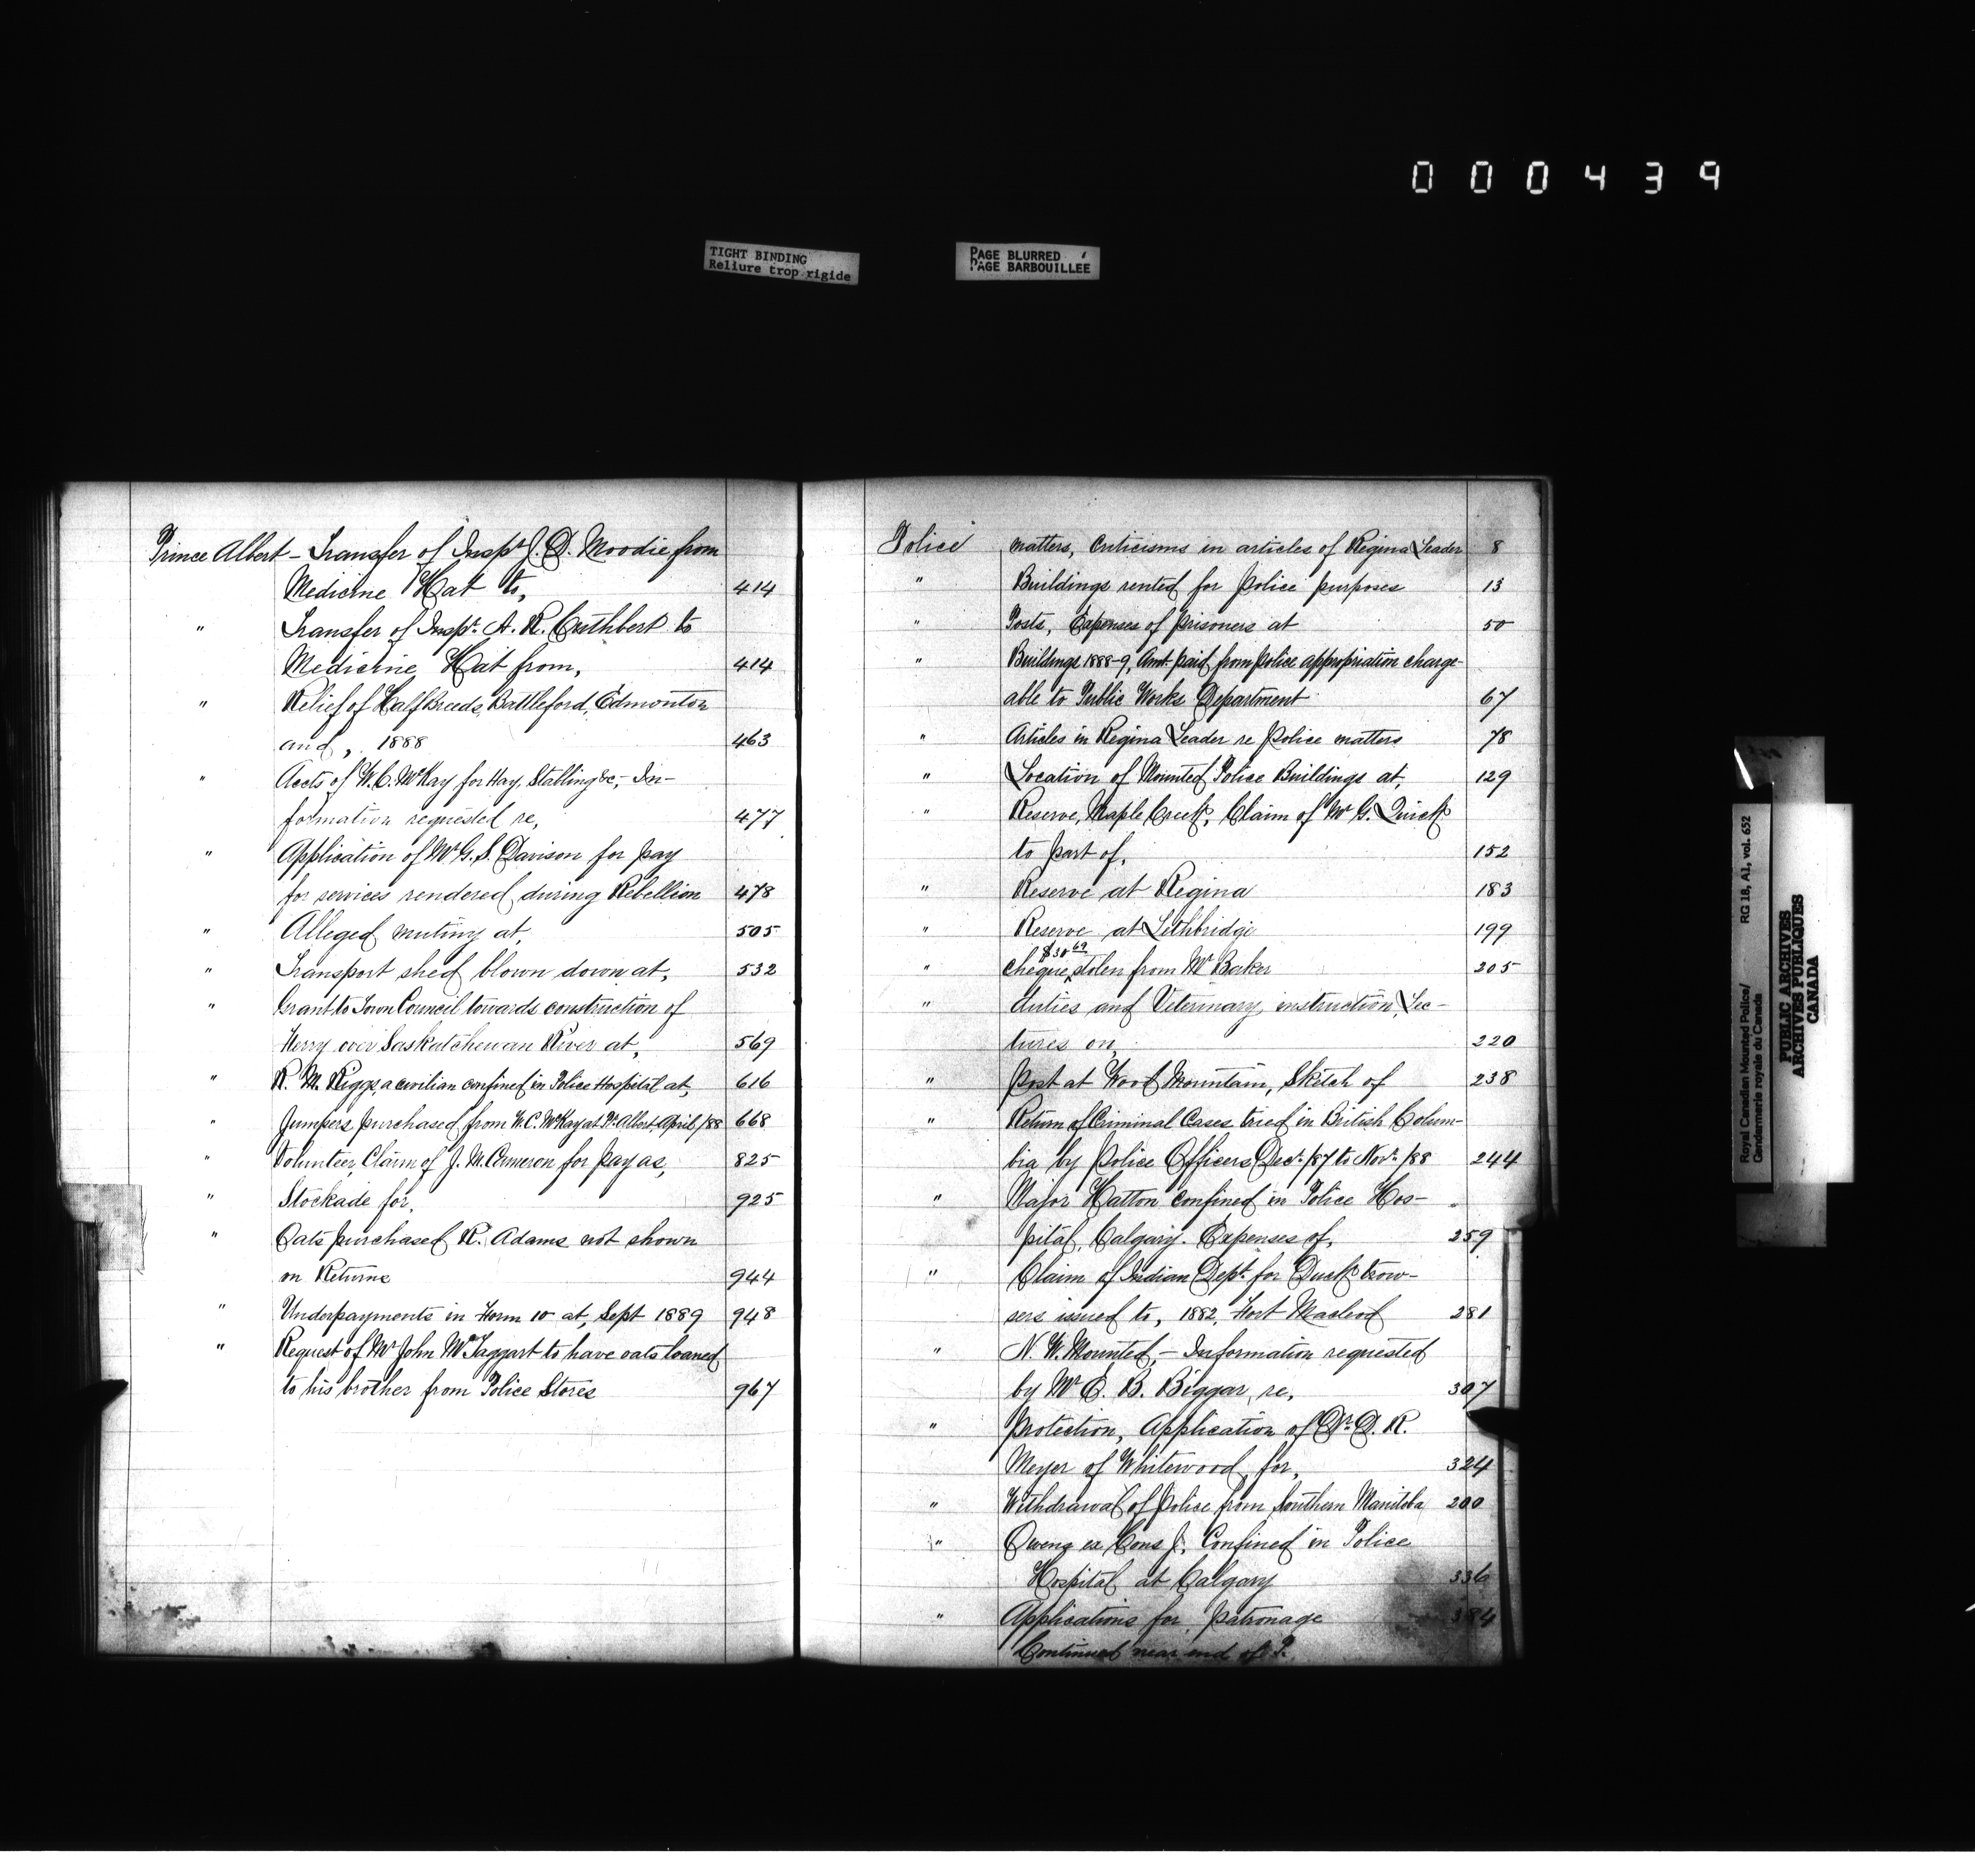 000439
TIGHT BINDING
Reliure trop rigide
PAGE BLURRED
PAGE BARBOUILLEE
Prince Albert - Transfer of Inspr. J. D. Moodie from
Medicine Hat to, 414
" Transfer of Inspr. A. R. Cuthbert to
Medicine Hat from, 414
" Relief of Half Breeds, Battleford, Edmonton
and, 1888 463
" Accts of W. C. McKay for Hay, Stabling &c, - In-
formation requested re, 477
" Application of Mr G. S. Davison for pay
for services rendered during Rebellion 478
" Alleged mutiny at, 505
" Transport shed blown down at, 532
" Grant to Town Council towards construction of
Ferry over Saskatchewan River at, 569
" R. M. Riggs, a civilian confined in Police Hospital at, 616
" Jumpers purchased from W. C. McKay at P. Albert, April/88 668
" Volunteer, Claim of J. M. Cameron for pay as, 825
" Stockade for, 925
" Oats purchased R. Adams not shown
on Returns 944
" Underpayments in Form 10 at, Sept 1889 948
" Request of Mr John McTaggart to have oats loaned
to his brother from Police Stores 967
Police matters, Criticisms in articles of Regina Leader 8
" Buildings rented for Police purposes 13
" Posts, Expenses of prisoners at 50
" Buildings 1888-9, Amt. paid from Police appropriation charge-
able to Public Works Department 67
" Articles in Regina Leader re Police matters 78
" Location of Mounted Police Buildings at, 129
" Reserve, Maple Creek, Claim of Mr G. Quick
to part of, 152
" Reserve at Regina 183
" Reserve at Lethbridge 199
$30 69
" cheque stolen from Mr Baker 205
" duties and Veterinary instruction, Lec-
tures on, 220
" Post at Wood Mountain, Sketch of 238
" Return of Criminal Cases tried in British Colum-
bia by Police Officers Decr. /87 to Novr. /88 244
" Major Hatton confined in Police Hos-
pital, Calgary. Expenses of, 259
" Claim of Indian Dept. for Duck trow-
sers issued to, 1882, Fort Macleod 281
" N. W. Mounted, - Information requested
by Mr E. B. Biggar, re, 307
" Protection, Application of Dr. D. R.
Meyer of Whitewood, for, 324
" Withdrawal of Police from Southern Manitoba 200
" Owens ex Cons J. Confined in Police
Hospital at Calgary 336
" Applications for patronage 384
Continued near end of P.
RG 18, A1, vol. 652
Royal Canadian Mounted Police/
Gendarmerie royale du Canada
PUBLIC ARCHIVES
ARCHIVES PUBLIQUES
CANADA